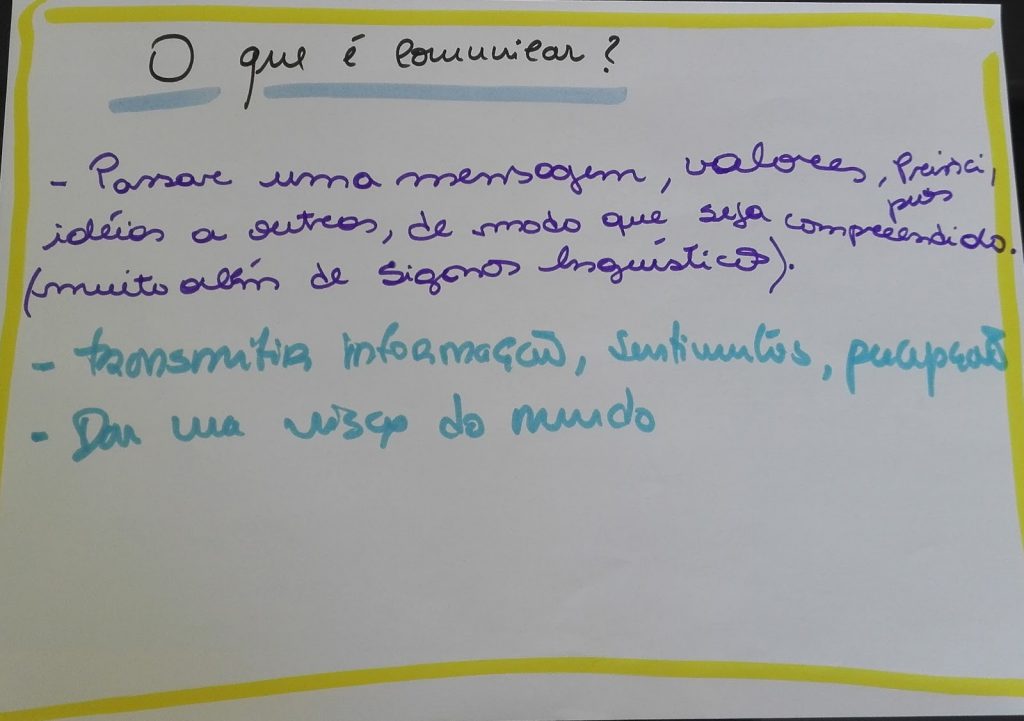 O que é comunicar?
- Passar uma mensagem, valores, princi,
pios
idéias a outros, de modo que seja compreendido.
(muito além de signos linguísticos).
- transmitir informação, sentimentos, percepção
- Dar sua visão do mundo